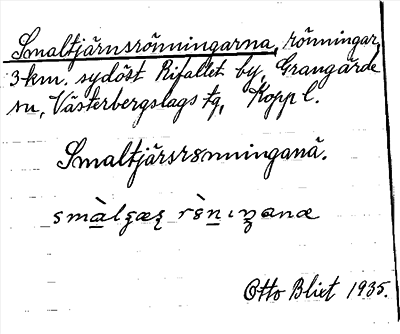 Smaltjärnsrönningarna, rönningar,
3 km. sydöst Rifallet by, Grangärde
sn, Västerbergslags tg, Kopp l.
Smaltjärsrönninganä.
Otto Blixt 1935.